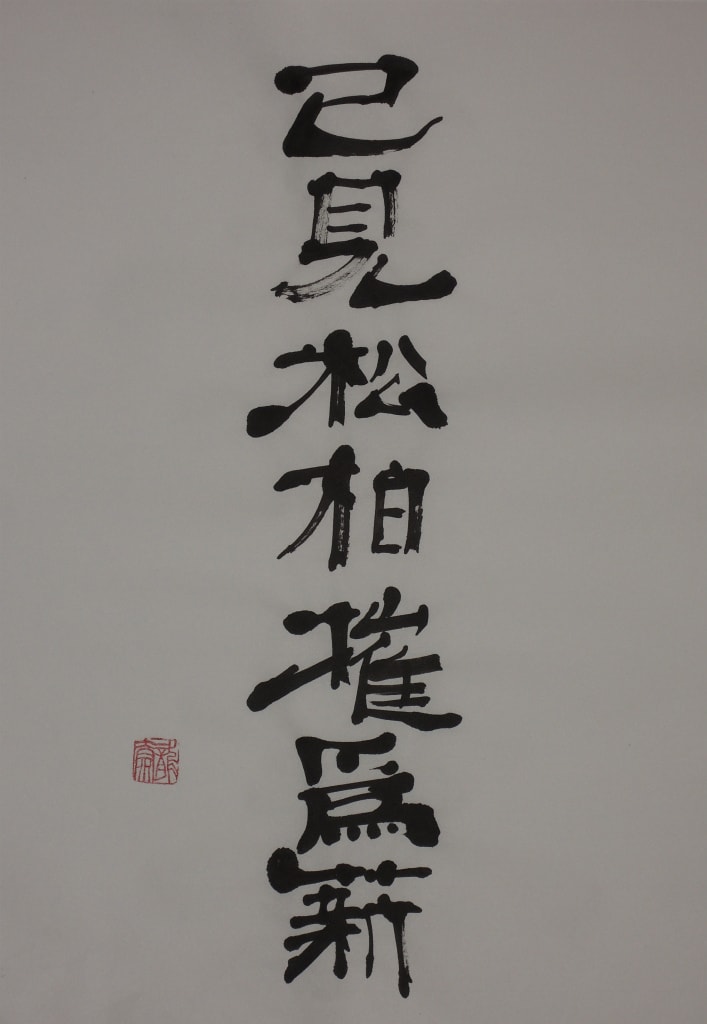 已見松柏摧爲薪